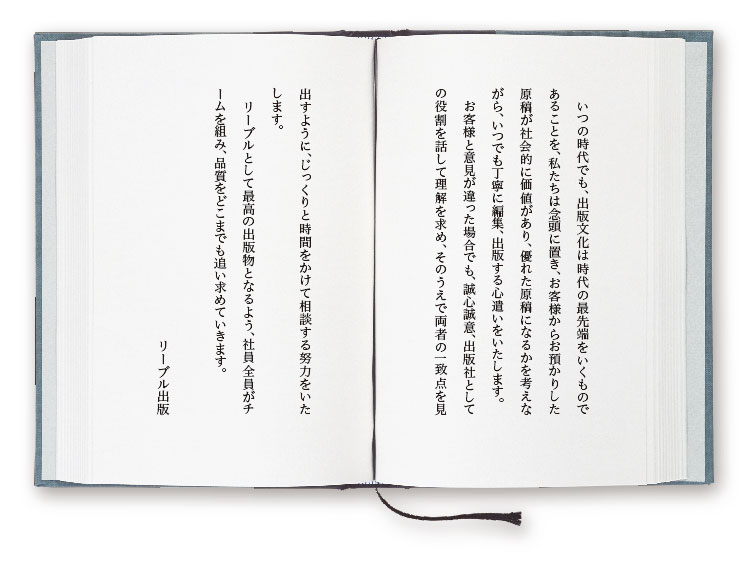 いつの時代でも、出版文化は時代の最先端をいくもので
あることを、私たちは念頭に置き、お客様からお預かりした
原稿が社会的に価値があり、優れた原稿になるかを考えな
がら、いつでも丁寧に編集、出版する心遣いをいたします。
お客様と意見が違った場合でも、誠心誠意、出版社として
の役割を話して理解を求め、そのうえで両者の一致点を見
出すように、じっくりと時間をかけて相談する努力をいた
します。
リーブルとして最高の出版物となるよう、社員全員がチ
ームを組み、品質をどこまでも追い求めていきます。
リーブル出版